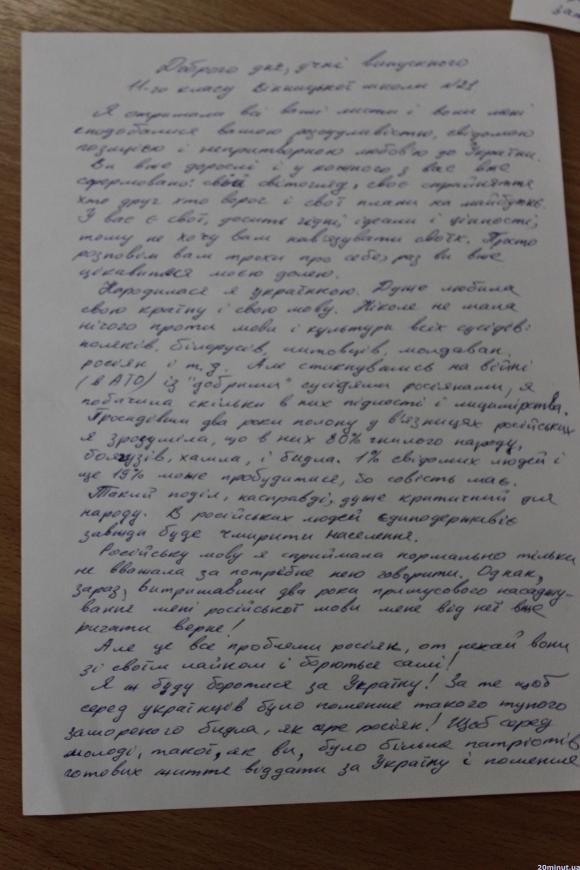 Доброго дня, учні випускного
11-го класу Вінницької школи №21
Я отримала всі ваші листи і вони мені
сподобалися вашою розсудливістю, свідомою
позицією і непритворною любов'ю до України.
Ви вже дорослі і у кожного з вас вже
сформовано: свій світогляд, своє сприйняття
хто друг хто ворог і свої плани на майбутнє.
У вас є свої, досить гідні, ідеали і цінності,
тому не хочу вам нав'язувати своїх. Просто
розповім вам трохи про себе, раз ви вже
цікавитися моєю долею.
Народилася я українкою. Дуже любила
свою країну і свою мову. Ніколе не мала
нічого проти мови і культури всіх сусідів:
поляків, білорусів, литовців, молдаван,
росіян і т.д. Але стикнувшись на війні
(в АТО) із "добрими" сусідями росіянами, я
побачила скільки в них підлості і лицимірства.
Просидівши два роки полону у в'язницях російських
я зрозуміла, що в них 80% гнилого народу,
боягузів, хамла, і бидла. 1% свідомих людей і
ще 19% може пробудитися, бо совість має.
Такий поділ, насправді, дуже критичний для
народу. В російських людей єдиподержавіє
завжди буде чмирити населення.
Російську мову я сприймала нормально тільки
не вважала за потрібне нею говорити. Однак,
зараз, витримавши два роки примусового насаджу-
вання мені російської мови мене від неї вже
ригати верне!
Але це все проблеми росіян, от нехай вони
зі своїм лайном і борються самі!
Я ж буду боротися за Україну! За те щоб
серед українців було поменше такого тупого
замореного бидла, як серед росіян! Щоб серед
молоді, такої, як ви, було більше патріотів
готових життя віддати за Україну і поменше
20minut.ua